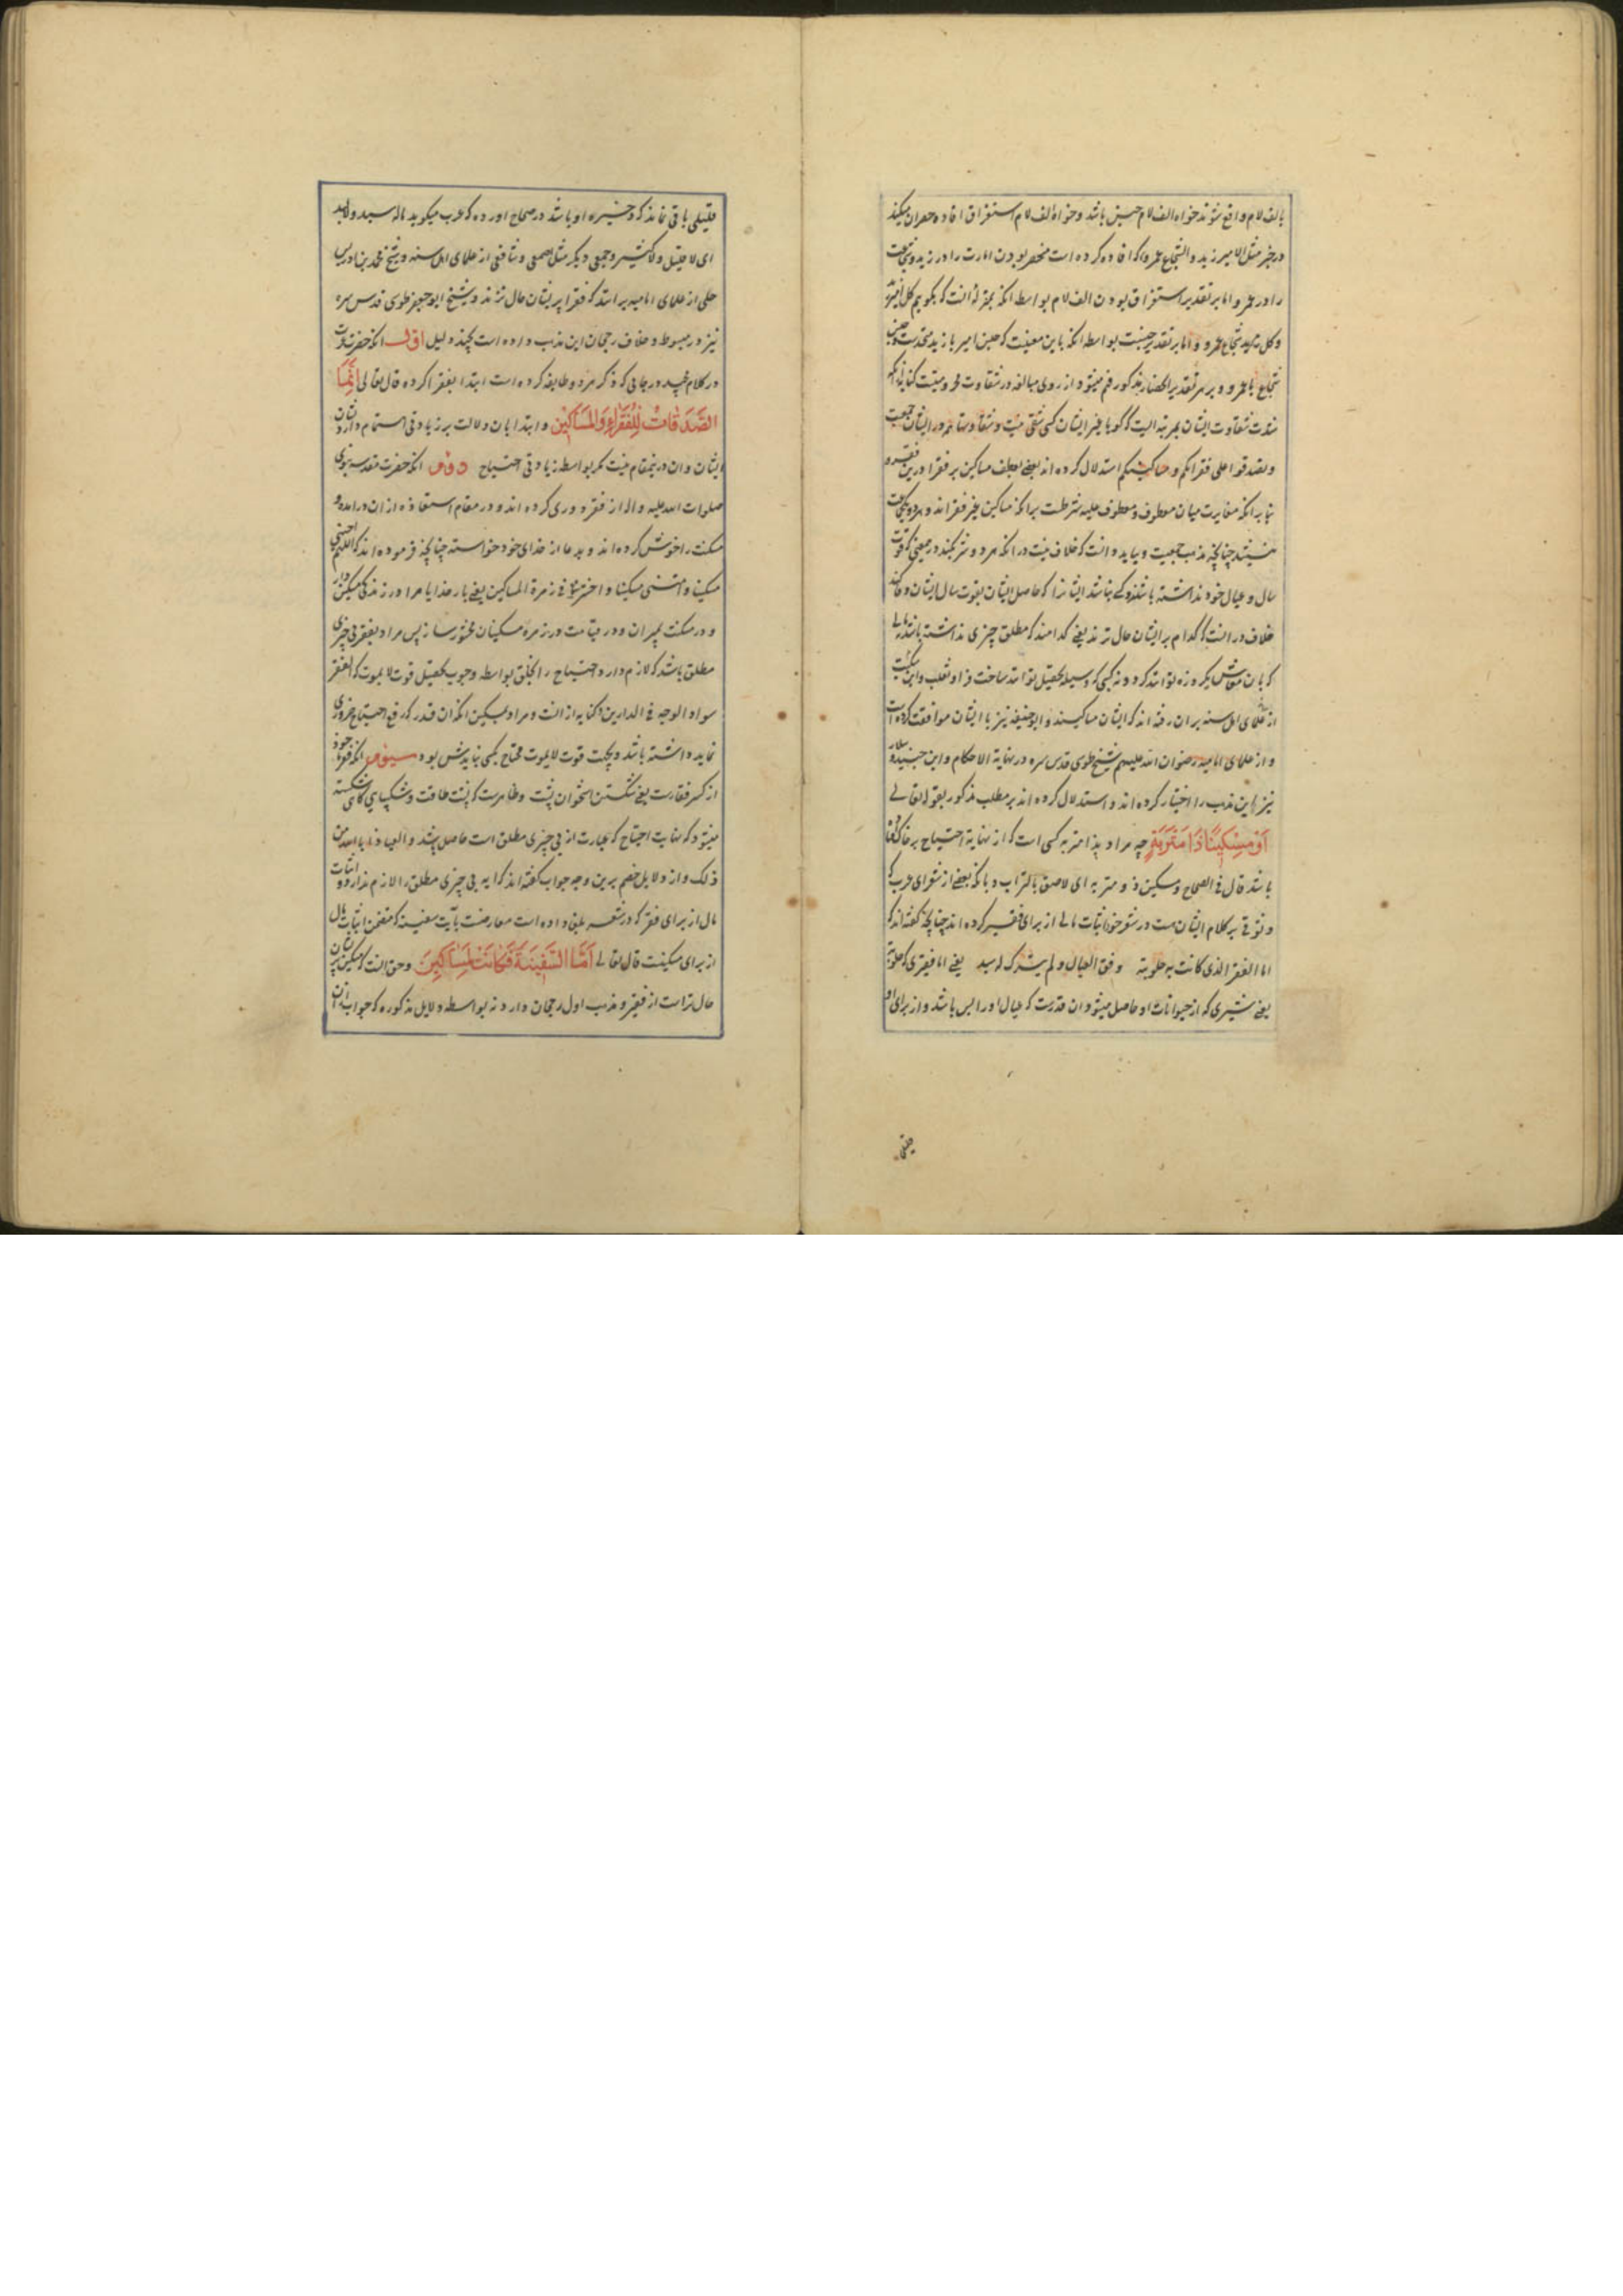 بالف لام واقع شوند خواه الف لام جنس باشد و خواه الف لام استغراق افاده حصران میکند
در خبر مثل الامیر زید و الشجاع عمرو که افاده کرده است منحصر بودن امارت را در زید و شجاعت
را در عمرو اما بر تقدیر استغراق بودن الف لام بواسطه انکه بمنزله انست که بکویم کل امیر زید
و کل شجاع عمرو و اما بر تقدیر جنسیت بواسطه انکه باین معنیست که جنس امیر با زید متحدست و جنس
شجاع با عمرو و بر هر تقدیر انحصار مذکور فهم میشود از روی مبالغه در شقاوت
شدت شقاوت ایشان بمرتبه ایست که کویا غیر ایشان کسی شقی نیست و شقاوت در ایشان
و بصدقوا علی فقرائکم و مساکینکم استدلال کرده اند بعضی بعطف مساکین بر فقرا درین فقره
بنابر انکه مغایرت میان معطوف و معطوف علیه شرطست برانکه مساکین غیر فقرااند و هر دو یکجماعت
نیستند چنانچه مذهب جمعیست و بباید دانست که خلاف نیست در انکه هر دو شریکند در معنی که قوت
سال و عیال خود نداشته باشند و کسبی نباشد ایشانرا که حاصل ایشان بقوت سال ایشان وفا کند
خلاف در انست که کدام پریشان حال ترند یعنی کدامند که مطلق چیزی نداشته باشند نه مالی
که بان معاش یکروزه توانند کرد و نه کسبی که وسیله تحصیل توانند ساخت فرا و ثعلب و ابن سکیت
از علمای اهل سنه بران رفته اند که ایشان مساکینند و ابو حنیفه نیز با ایشان موافقت کرده است
و از علمای امامیه رضوان الله علیهم شیخ طوسی قدس سره در نهایة الاحکام و ابن جنید و سلار
نیز این مذهب را اختیار کرده اند و استدلال کرده اند بر مطلب مذکور بقوله تعالی
أَوْ مِسْكِينًا ذَا مَتْرَبَةٍ چه مراد بذا متربه کسی است که از نهایة احتیاج بر خاک افتاده
باشد قال فی الصحاح و مسکین ذو متربه ای لاصق بالتراب و بانکه بعضی از شعرای عرب که
وثوقی بر کلام ایشان هست در شعر خود اثبات مالی از برای فقیر کرده اند چنانچه کفته اند که
اما الفقیر الذی کانت به حلوبته وفق العیال و لم یترک له سبد یعنی اما فقیری که حلوبه
یعنی شیری که از حیوانات او حاصل میشود ان قدرست که عیال او را بس باشد و از برای او
قلیلی
قلیلی باقی نماند که ذخیره او باشد در صحاح اورده که عرب میکوید ماله سبد و لا لبد
ای لا قلیل و لا کثیر و جمعی دیکر مثل اصمعی و شافعی از علمای اهل سنه و شیخ محمد بن ادریس
حلی از علمای امامیه برانند که فقرا پریشان حال ترند و شیخ ابو جعفر طوسی قدس سره
نیز در مبسوط و خلاف رجحان این مذهب داده است بچند دلیل اول انکه حضرت عزت
در کلام مجید در جایی که ذکر هر دو طایفه کرده است ابتدا بفقرا کرده قال تعالی إِنَّمَا
الصَّدَقَاتُ لِلْفُقَرَاءِ وَالْمَسَاكِينِ و ابتدا بان دلالت بر زیادتی اهتمام دارد بشان
ایشان و ان در ینمقام نیست مکر بواسطه زیادتی احتیاج دوم انکه حضرت مقدسه نبوی
صلوات الله علیه و اله از فقر دوری کرده اند و در مقام استعاذه از ان درامده و
مسکنت را خوش کرده اند و بدعا از خدای خود خواسته چنانچه فرموده اند که اللهم احینی
مسکینا و امتنی مسکینا و احشرنی فی زمرة المساکین یعنی بار خدایا مرا در زندکی مسکین دار
و در مسکنت بمیران و در قیامت در زمره مسکینان محشور ساز پس مراد بفقر بی چیزی
مطلق باشد که لازم دارد احتیاج را بخلق بواسطه وجوب تحصیل قوت لایموت که الفقر
سواد الوجه فی الدارین کنایه از انست و مراد بمسکین انکه ان قدر که رفع احتیاج ضروری
نماید داشته باشد و بجهت قوت لایموت محتاج بکسی نبایدش بود سیوم انکه فقر ماخوذ
از کسر فقارست یعنی شکستن استخوان پشت و ظاهرست که پشت طاقت و شکیبایی کاهی شکسته
میشود که نهایت احتیاج که عبارت از بی چیزی مطلق است حاصل باشد و العیاذ بالله من
ذلک و از دلایل خصم برین وجه جواب کفته اند که ایه بی چیزی مطلق را لازم ندارد و اثبات
مال از برای فقیر که در شعر بلیغ داده است معارضست بآیت سفینه که متضمن اثبات مال
از برای مسکینست قال تعالی أَمَّا السَّفِينَةُ فَكَانَتْ لِمَسَاكِينَ و حق انست که مسکین پریشان
حال تر است از فقیر و مذهب اول رجحان دارد نه بواسطه دلایل مذکوره که جواب ان